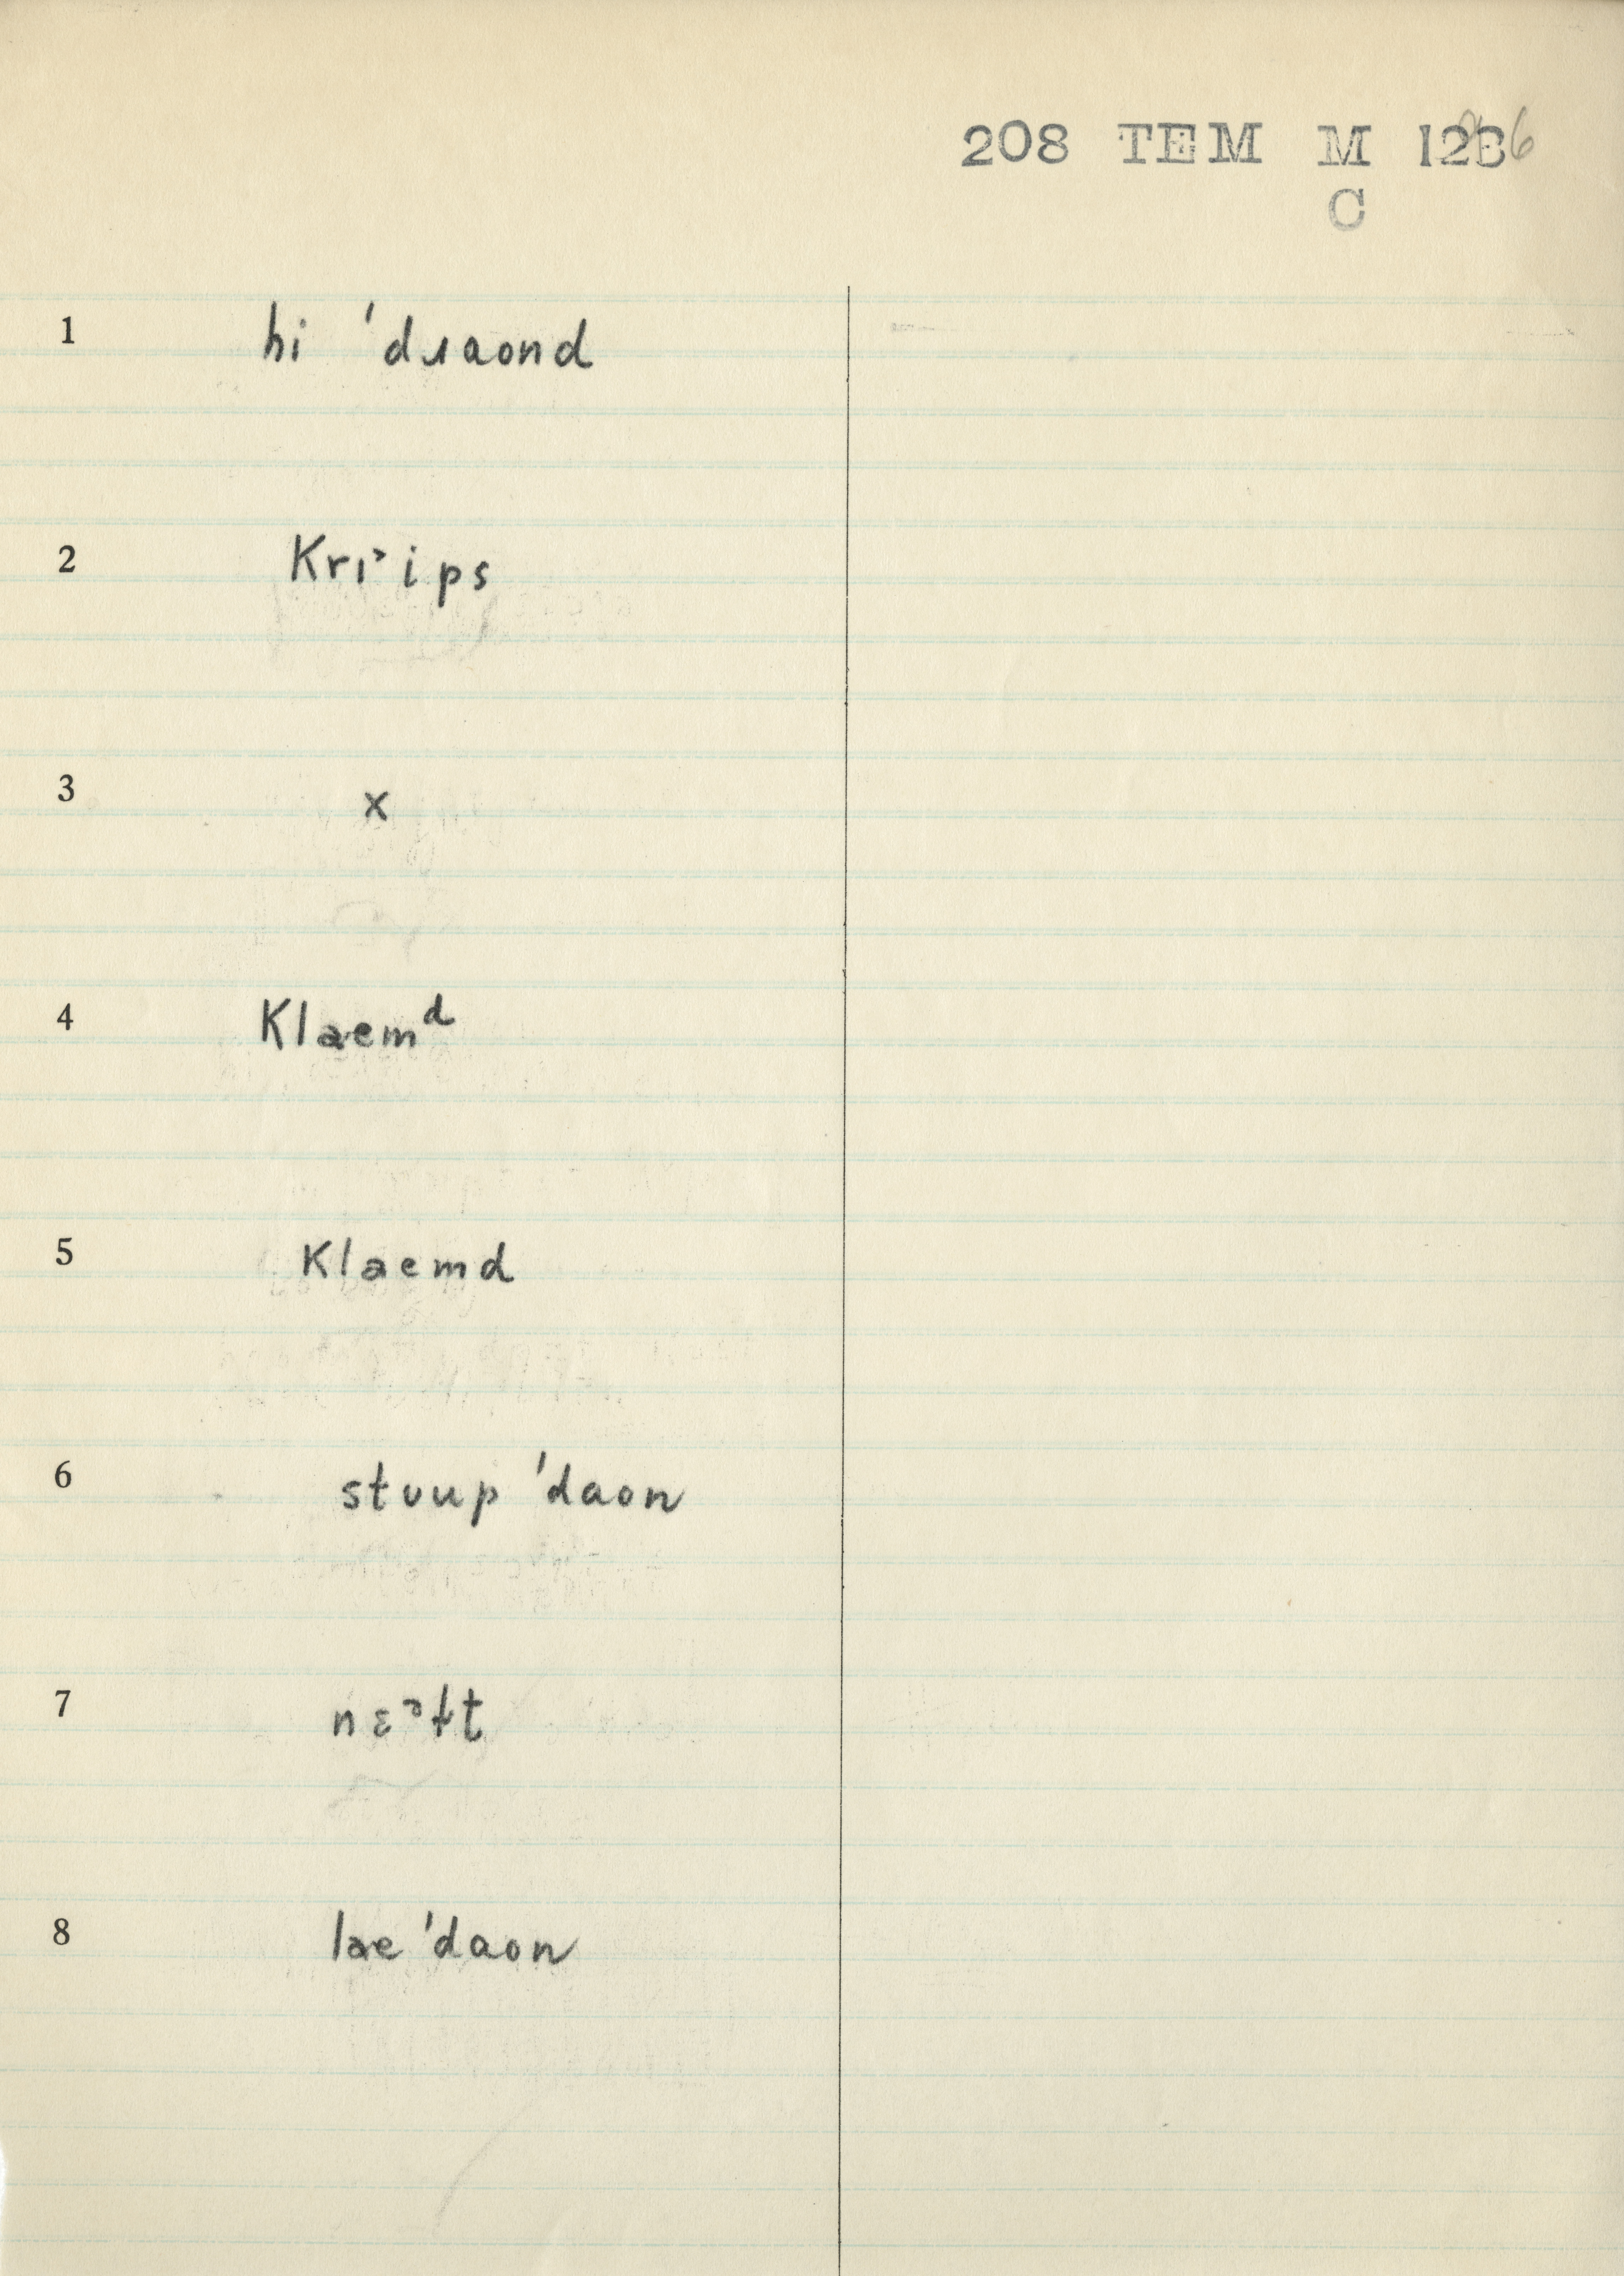 208 TEM M
C
1 hi 'dɹaond
2 Krɪˀips
3 x
4 Klaemᵈ
5 Klaemd
6 stʊup 'daon
7 nɛᵊɫt
8 lae 'daon